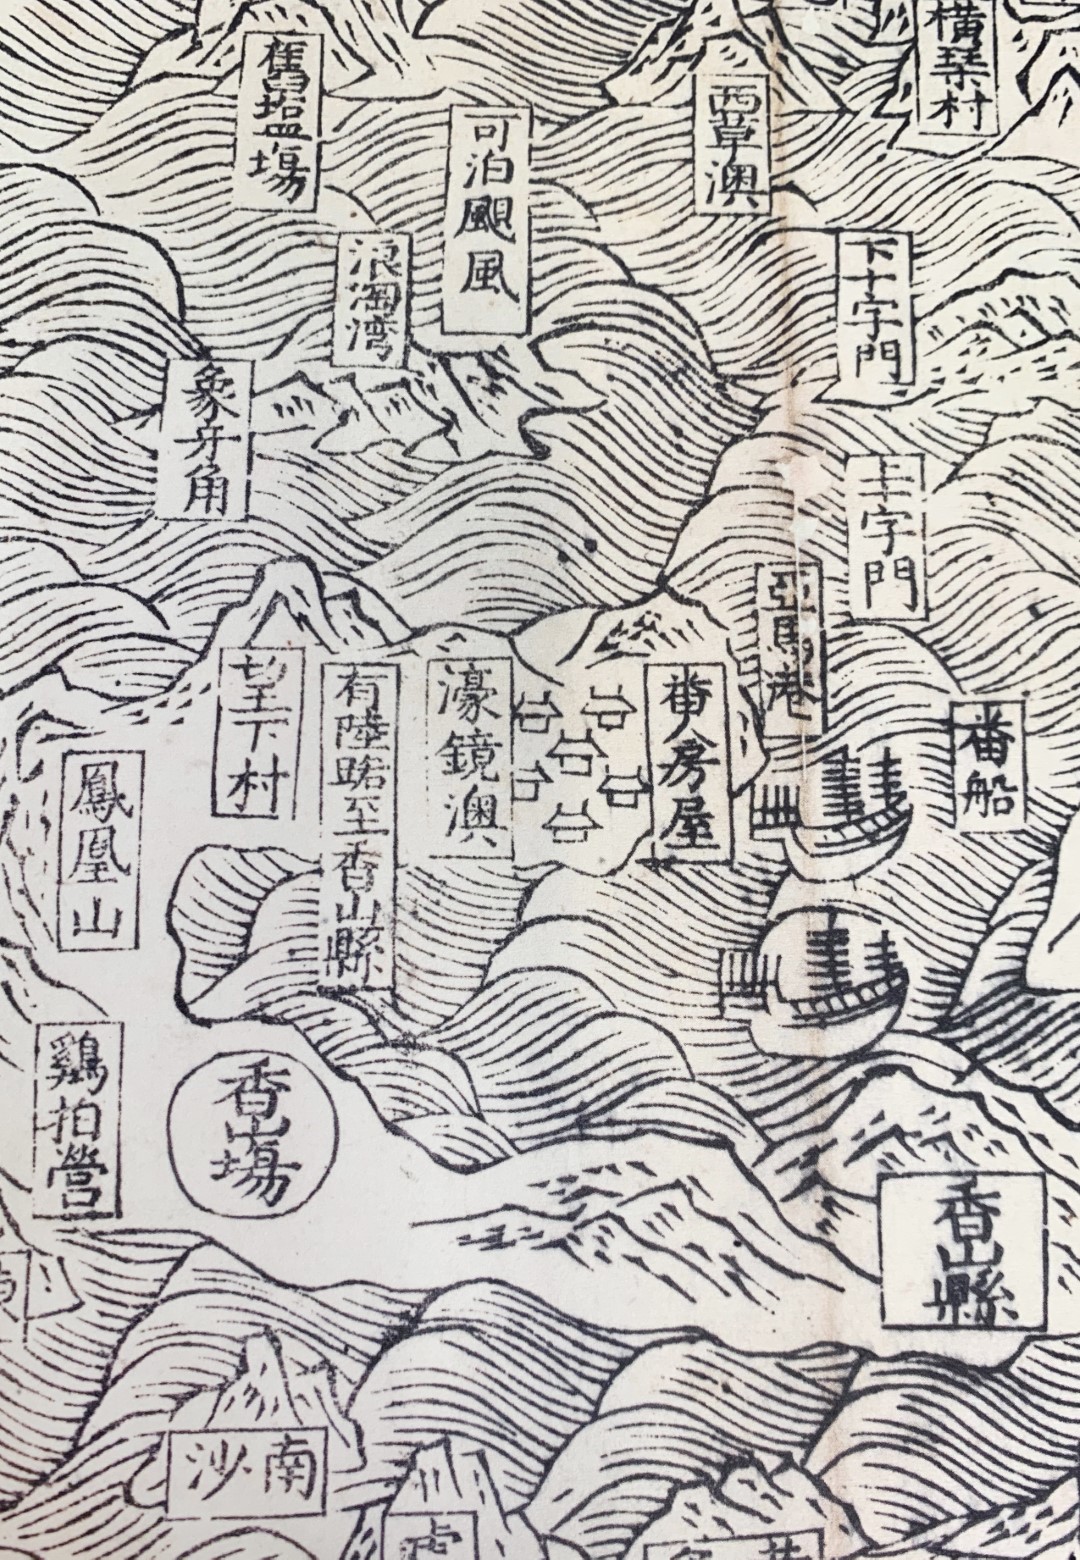 橫琴村
西草澳
可泊颶風
舊塩場
下十字門
浪淘湾
象牙角
十字門
亞馬港
番船
番房屋
濠鏡澳
有陸路至香山縣
望下村
鳳凰山
香山縣
香山場
鷄拍營
南沙